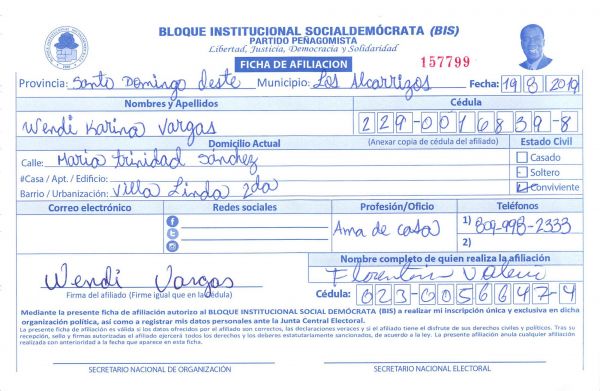 BLOQUE INSTITUCIONAL SOCIALDEMÓCRATA (BIS)
PARTIDO PEÑAGOMISTA
Libertad, Justicia, Democracia y Solidaridad
FICHA DE AFILIACION 157799
Provincia: Santo Domingo Oeste Municipio: Los Alcarrizos Fecha: 19/8/2019
Nombres y Apellidos Cédula
Wendi Karina Vargas 229-0016839-8
Domicilio Actual (Anexar copia de cédula del afiliado) Estado Civil
Calle: Maria trinidad Sánchez Casado
#Casa / Apt. / Edificio: Soltero
Barrio / Urbanización: Villa Linda 2da Conviviente
Correo electrónico Redes sociales Profesión/Oficio Teléfonos
Ama de casa 1) 809-998-2333
2)
Nombre completo de quien realiza la afiliación
Wendi Vargas Florentino Valerio
Firma del afiliado (Firme igual que en la cédula) Cédula: 023-0056647-4
Mediante la presente ficha de afiliación autorizo al BLOQUE INSTITUCIONAL SOCIAL DEMÓCRATA (BIS) a realizar mi inscripción única y exclusiva en dicha
organización política, así como a registrar mis datos personales ante la Junta Central Electoral.
La presente ficha de afiliación es válida si los datos ofrecidos por el afiliado son correctos, las declaraciones veraces y si el afiliado tiene el disfrute de sus derechos civiles y políticos. Tras su
recepción, sello y firmas autorizadas el afiliado ejercerá todos los derechos y los deberes estatutariamente sancionados, de acuerdo a la ley. La presente afiliación anula cualquier afiliación
realizada con anterioridad a la fecha que aparece en esta ficha.
SECRETARIO NACIONAL DE ORGANIZACIÓN SECRETARIO NACIONAL ELECTORAL